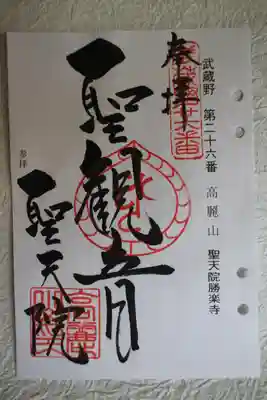 武蔵野 第二十六番 高麗山 聖天院勝楽寺
奉拝
聖観音
聖天院
参拝